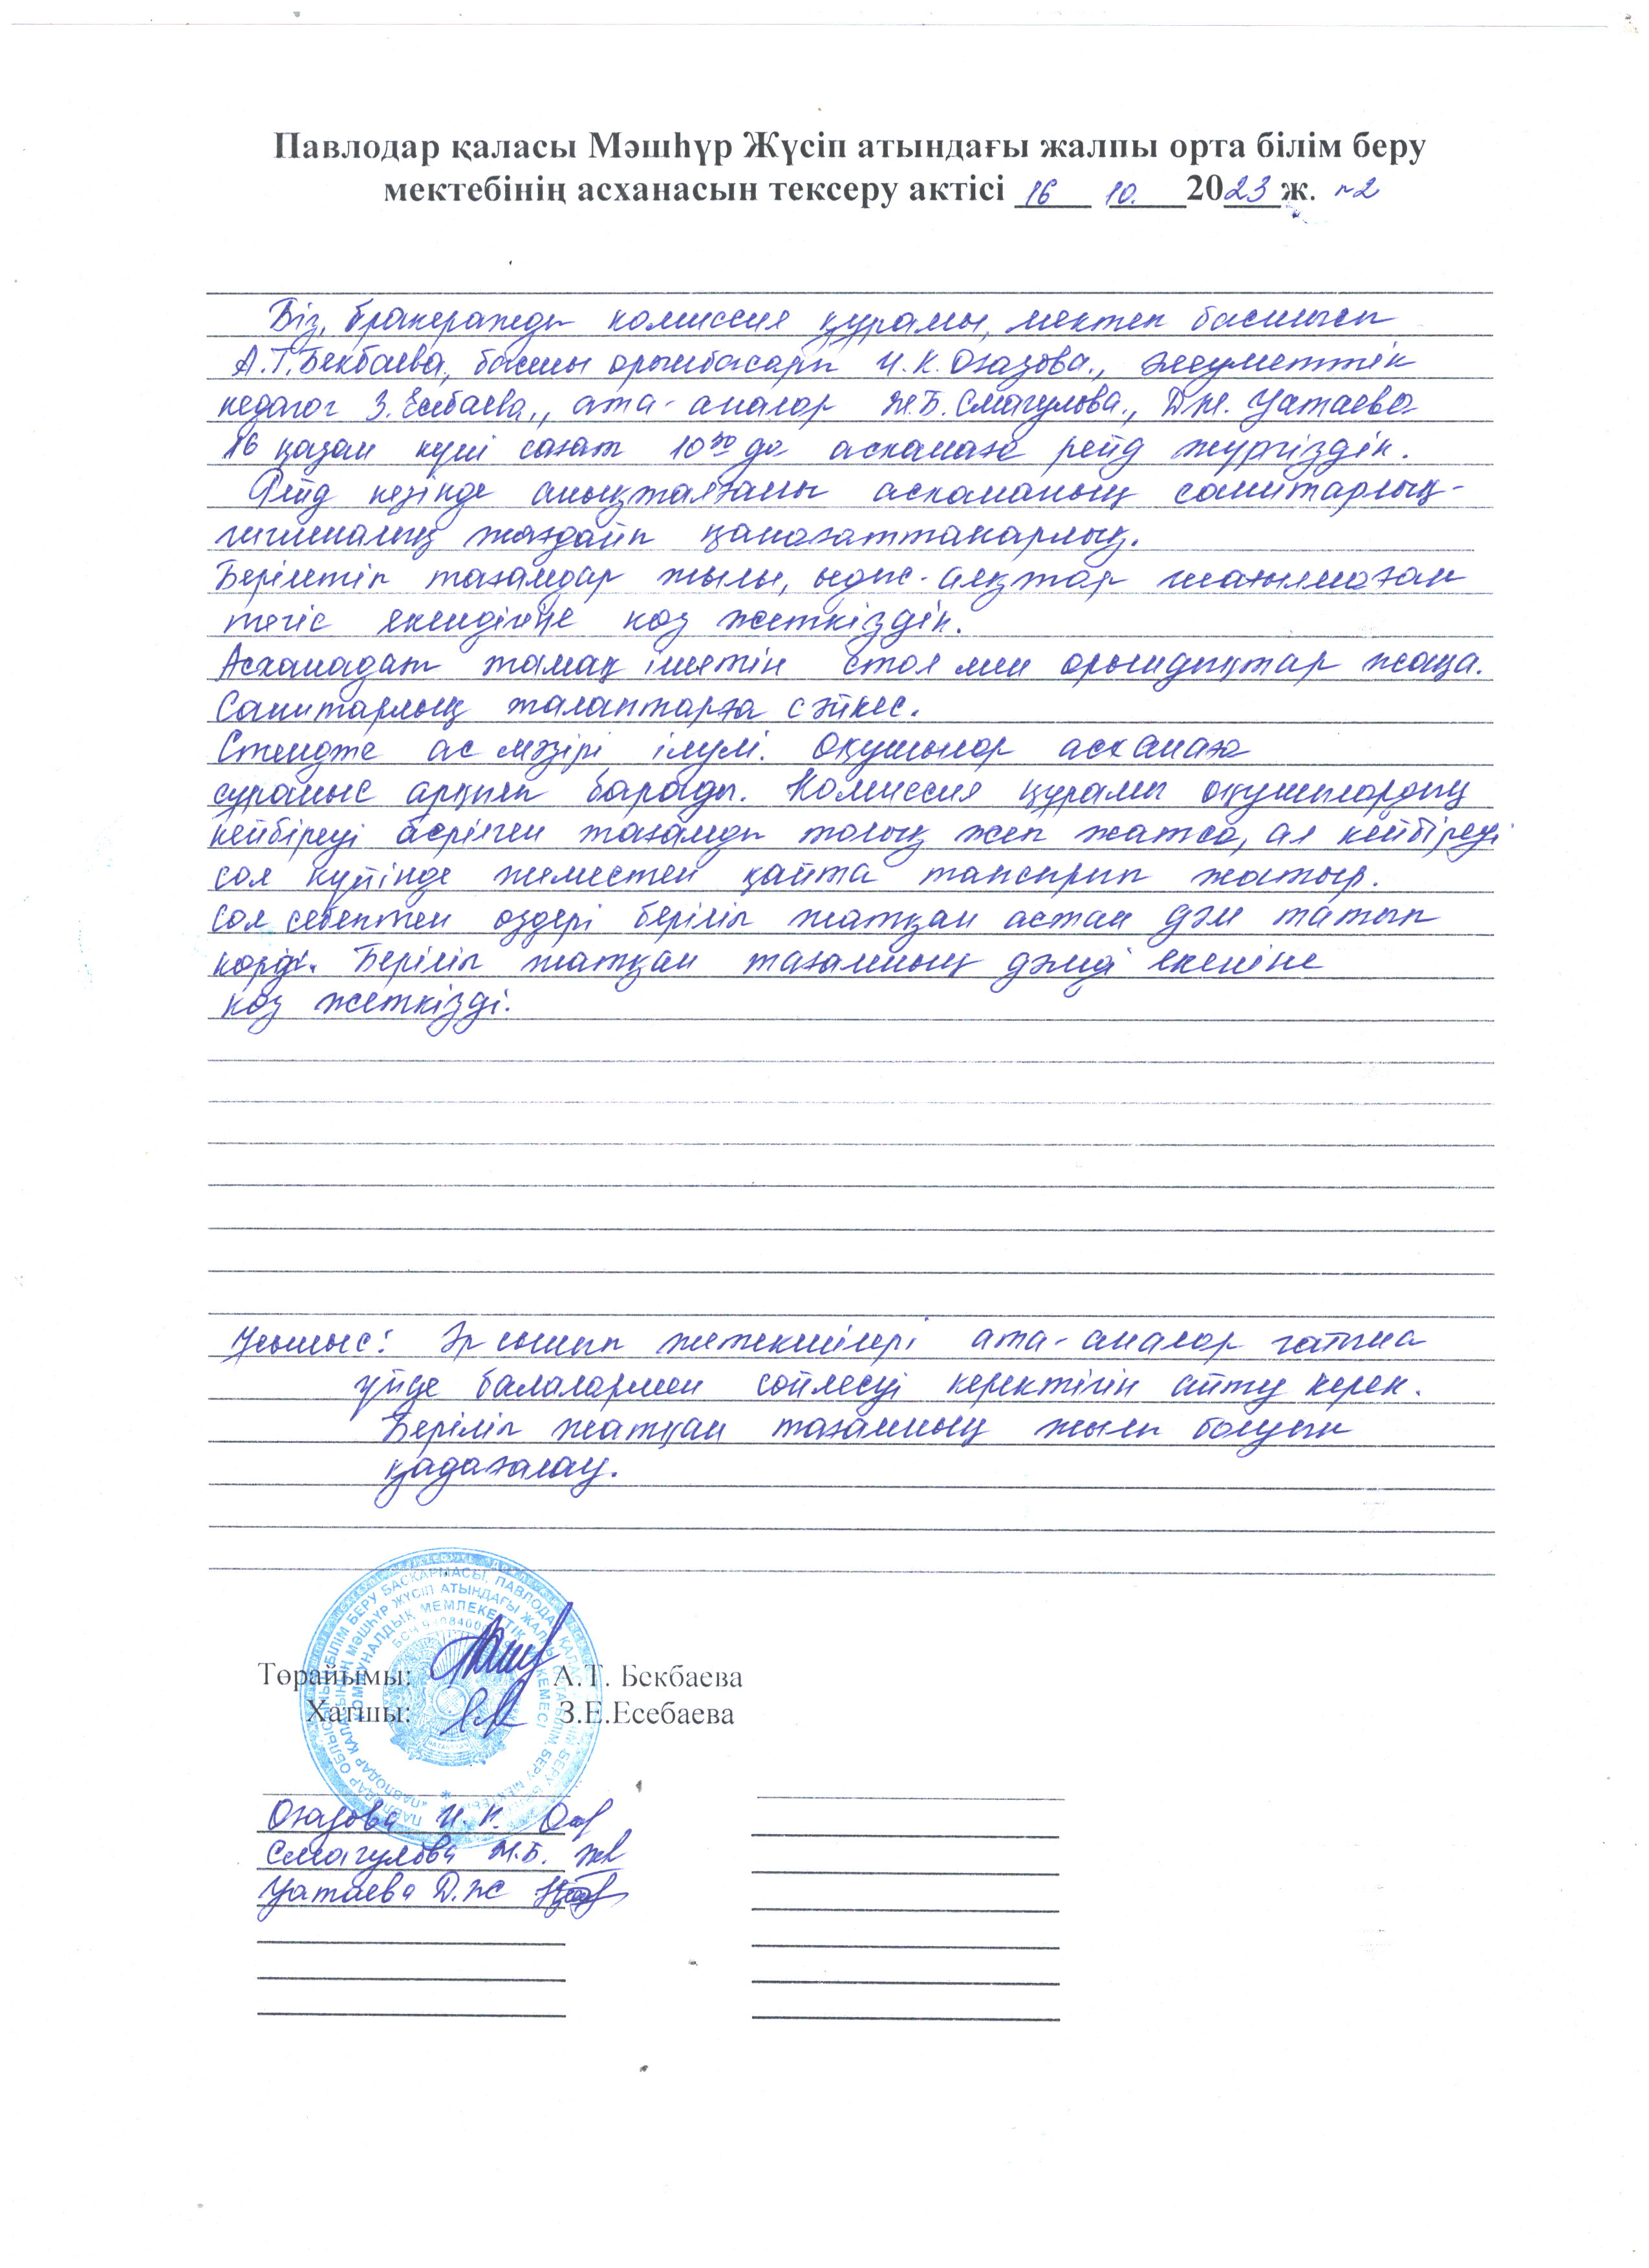 Павлодар қаласы Мәшһүр Жүсіп атындағы жалпы орта білім беру
мектебінің асханасын тексеру актісі 16 10. 2023 ж. №2
Біз, бракераждық комиссия құрамы, мектеп басшысы
А.Т.Бекбаева, басшы орынбасары И.К.Оразова., әлеуметтік
педагог З.Есебаева., ата-аналар Ж.Б.Смагулова., Д.Ж.Уатаева
16 қазан күні сағат 10³⁰ да асханаға рейд жүргіздік.
Рейд кезінде анықталғаны асхананың санитарлық-
гигиеналық жағдайы қанағаттанарлық.
Берілетін тағамдар жылы, ыдыс-аяқтар шағылмаған
тегіс екендігіне көз жеткіздік.
Асханадағы тамақ ішетін стол мен орындықтар жаңа.
Санитарлық талаптарға сәйкес.
Стендте ас мәзірі ілулі. Оқушылар асханаға
сұраныс арқылы барады. Комиссия құрамы оқушылардың
кейбіреуі берілген тағамды толық жеп жатса, ал кейбіреуі
сол күйінде жеместен қайта тапсырып жатыр.
сол себептен өздері беріліп жатқан астан дәм татып
көрді. Беріліп жатқан тағамның дәмді екеніне
көз жеткізді.
Ұсыныс: Әр сынып жетекшілері ата-аналар чатына
үйде балалармен сөйлесуі керектігін айту керек.
Беріліп жатқан тағамның жылы болуын
қадағалау.
Төрайымы: А.Т. Бекбаева
Хатшы: З.Е.Есебаева
Оразова И.К.
Смагулова Ж.Б.
Уатаева Д.Ж